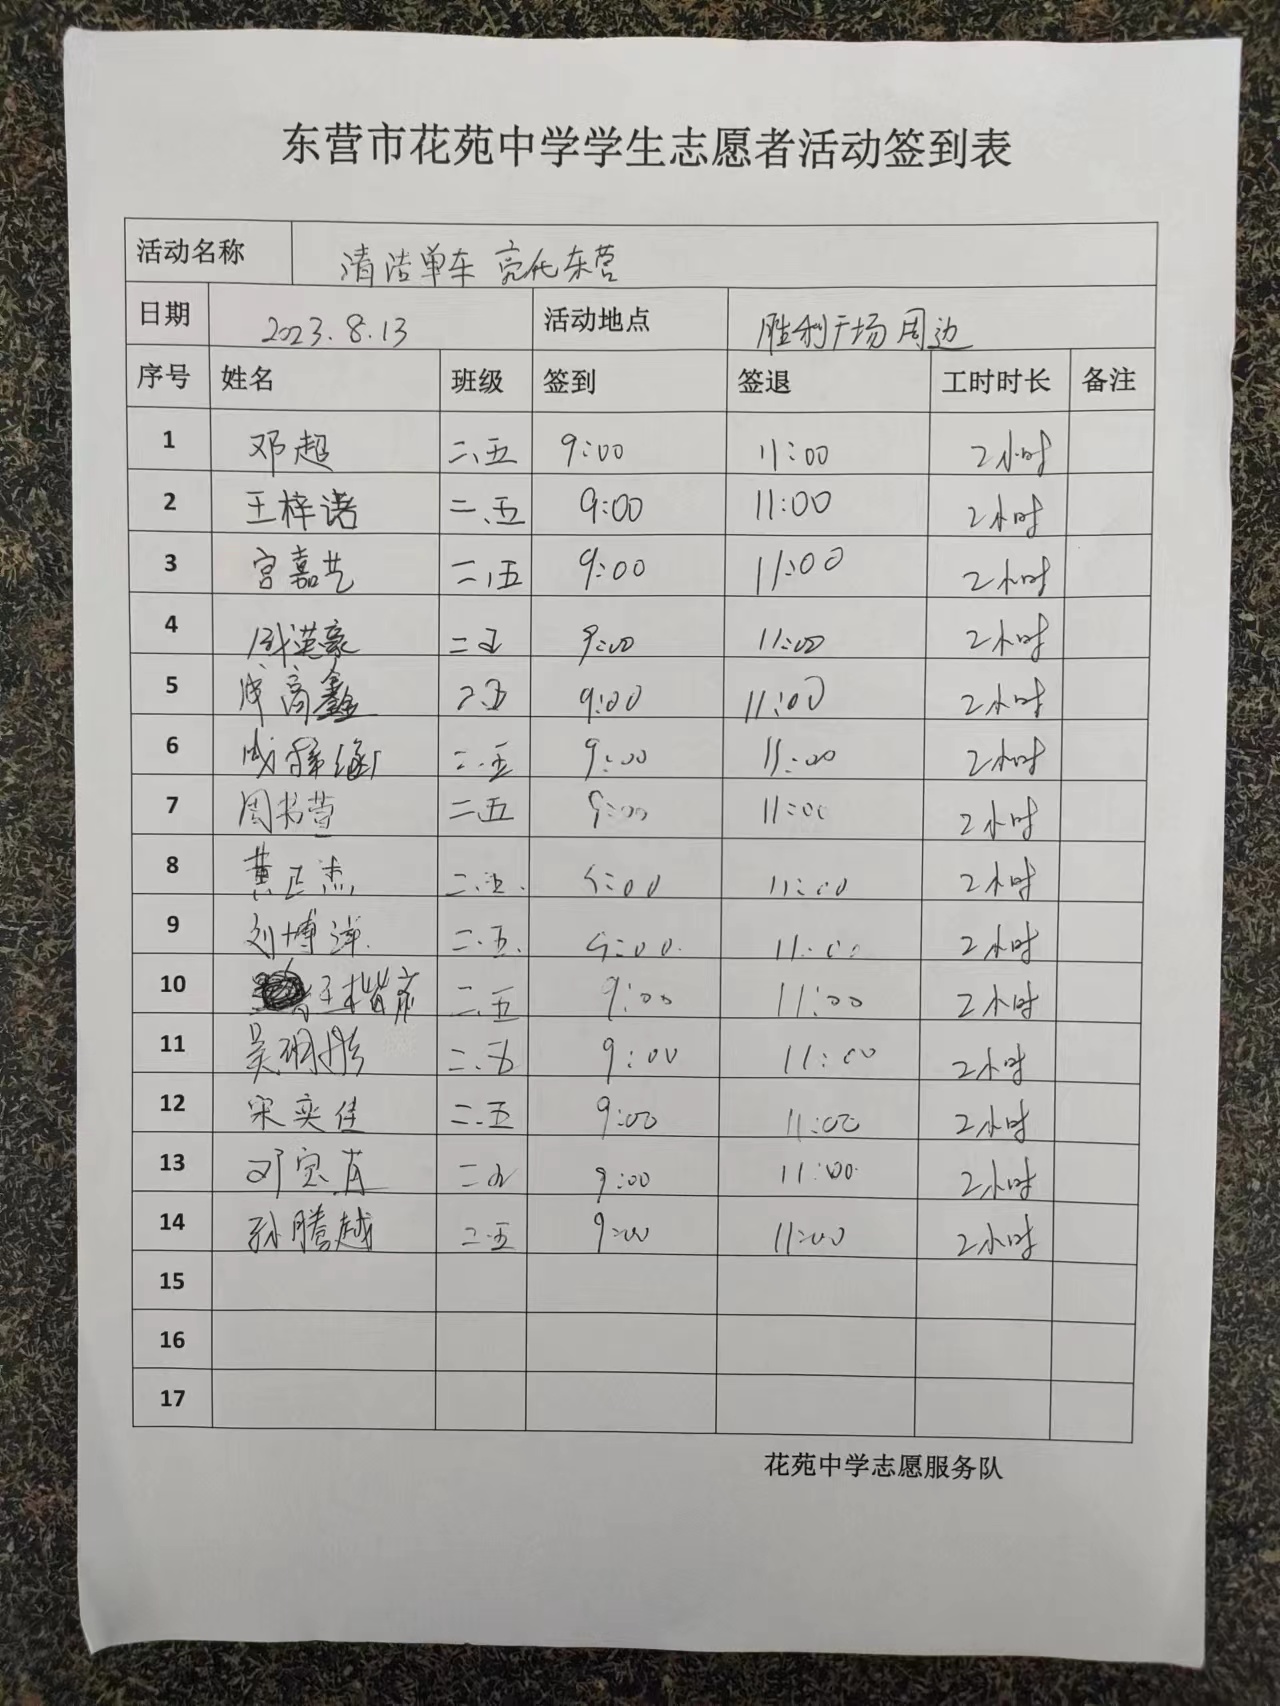 东营市花苑中学学生志愿者活动签到表
活动名称 清洁单车 亮化东营
日期 2023.8.13 活动地点 胜利广场周边
序号 姓名 班级 签到 签退 工时时长 备注
1 邓超 二、五 9:00 11:00 2小时
2 王梓诺 二、五 9:00 11:00 2小时
3 宫嘉艺 二、五 9:00 11:00 2小时
4 二五 9:00 11:00 2小时
5 高鑫 二.五 9:00 11:00 2小时
6 二.五 9:00 11:00 2小时
7 周书萱 二五 9:00 11:00 2小时
8 黄正杰 二.五. 9:00 11:00 2小时
9 刘博洋. 二.五. 9:00. 11:00 2小时
10 王楷 二.五 9:00 11:00 2小时
11 吴 二.五 9:00 11:00 2小时
12 宋奕佳 二.五 9:00 11:00 2小时
13 邓 二 9:00 11:00 2小时
14 孙腾越 二.五 9:00 11:00 2小时
15
16
17
花苑中学志愿服务队